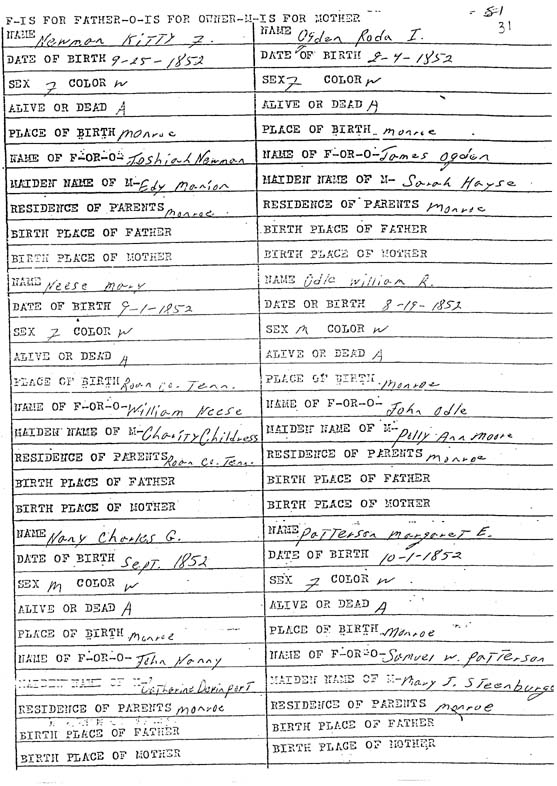 F-IS FOR FATHER-O-IS FOR OWNER-M-IS FOR MOTHER
31
NAME Newman Kitty F.
DATE OF BIRTH 9-25-1852
SEX F COLOR W
ALIVE OR DEAD A
PLACE OF BIRTH monroe
NAME OF F-OR-O- Joshiah Newman
MAIDEN NAME OF M- Edy Manion
RESIDENCE OF PARENTS monroe
BIRTH PLACE OF FATHER
BIRTH PLACE OF MOTHER
NAME Neese Mary
DATE OF BIRTH 9-1-1852
SEX F COLOR W
ALIVE OR DEAD A
PLACE OF BIRTH Roan co. Tenn.
NAME OF F-OR-O- William Neese
MAIDEN NAME OF M- Charity Childress
RESIDENCE OF PARENTS Roan Co. Tenn.
BIRTH PLACE OF FATHER
BIRTH PLACE OF MOTHER
NAME Nany Charles G.
DATE OF BIRTH Sept. 1852
SEX M COLOR W
ALIVE OR DEAD A
PLACE OF BIRTH Monroe
NAME OF F-OR-O- John Nanny
MAIDEN NAME OF M- Catharine Davinport
RESIDENCE OF PARENTS monroe
BIRTH PLACE OF FATHER
BIRTH PLACE OF MOTHER
NAME Ogden Roda I.
DATE OF BIRTH 8-4-1852
SEX F COLOR W
ALIVE OR DEAD A
PLACE OF BIRTH monroe
NAME OF F-OR-O- James Ogden
MAIDEN NAME OF M- Sarah Hayse
RESIDENCE OF PARENTS monroe
BIRTH PLACE OF FATHER
BIRTH PLACE OF MOTHER
NAME Odle William R.
DATE OR BIRTH 8-19-1852
SEX M COLOR W
ALIVE OR DEAD A
PLACE OF BIRTH Monroe
NAME OF F-OR-O- John Odle
MAIDEN NAME OF M- Polly Ann Moore
RESIDENCE OF PARENTS monroe
BIRTH PLACE OF FATHER
BIRTH PLACE OF MOTHER
NAME Patterson Margaret E.
DATE OF BIRTH 10-1-1852
SEX F COLOR W
ALIVE OR DEAD A
PLACE OF BIRTH Monroe
NAME OF F-OR-O- Samuel W. Patterson
MAIDEN NAME OF M- Mary J. Steenburge
RESIDENCE OF PARENTS monroe
BIRTH PLACE OF FATHER
BIRTH PLACE OF MOTHER